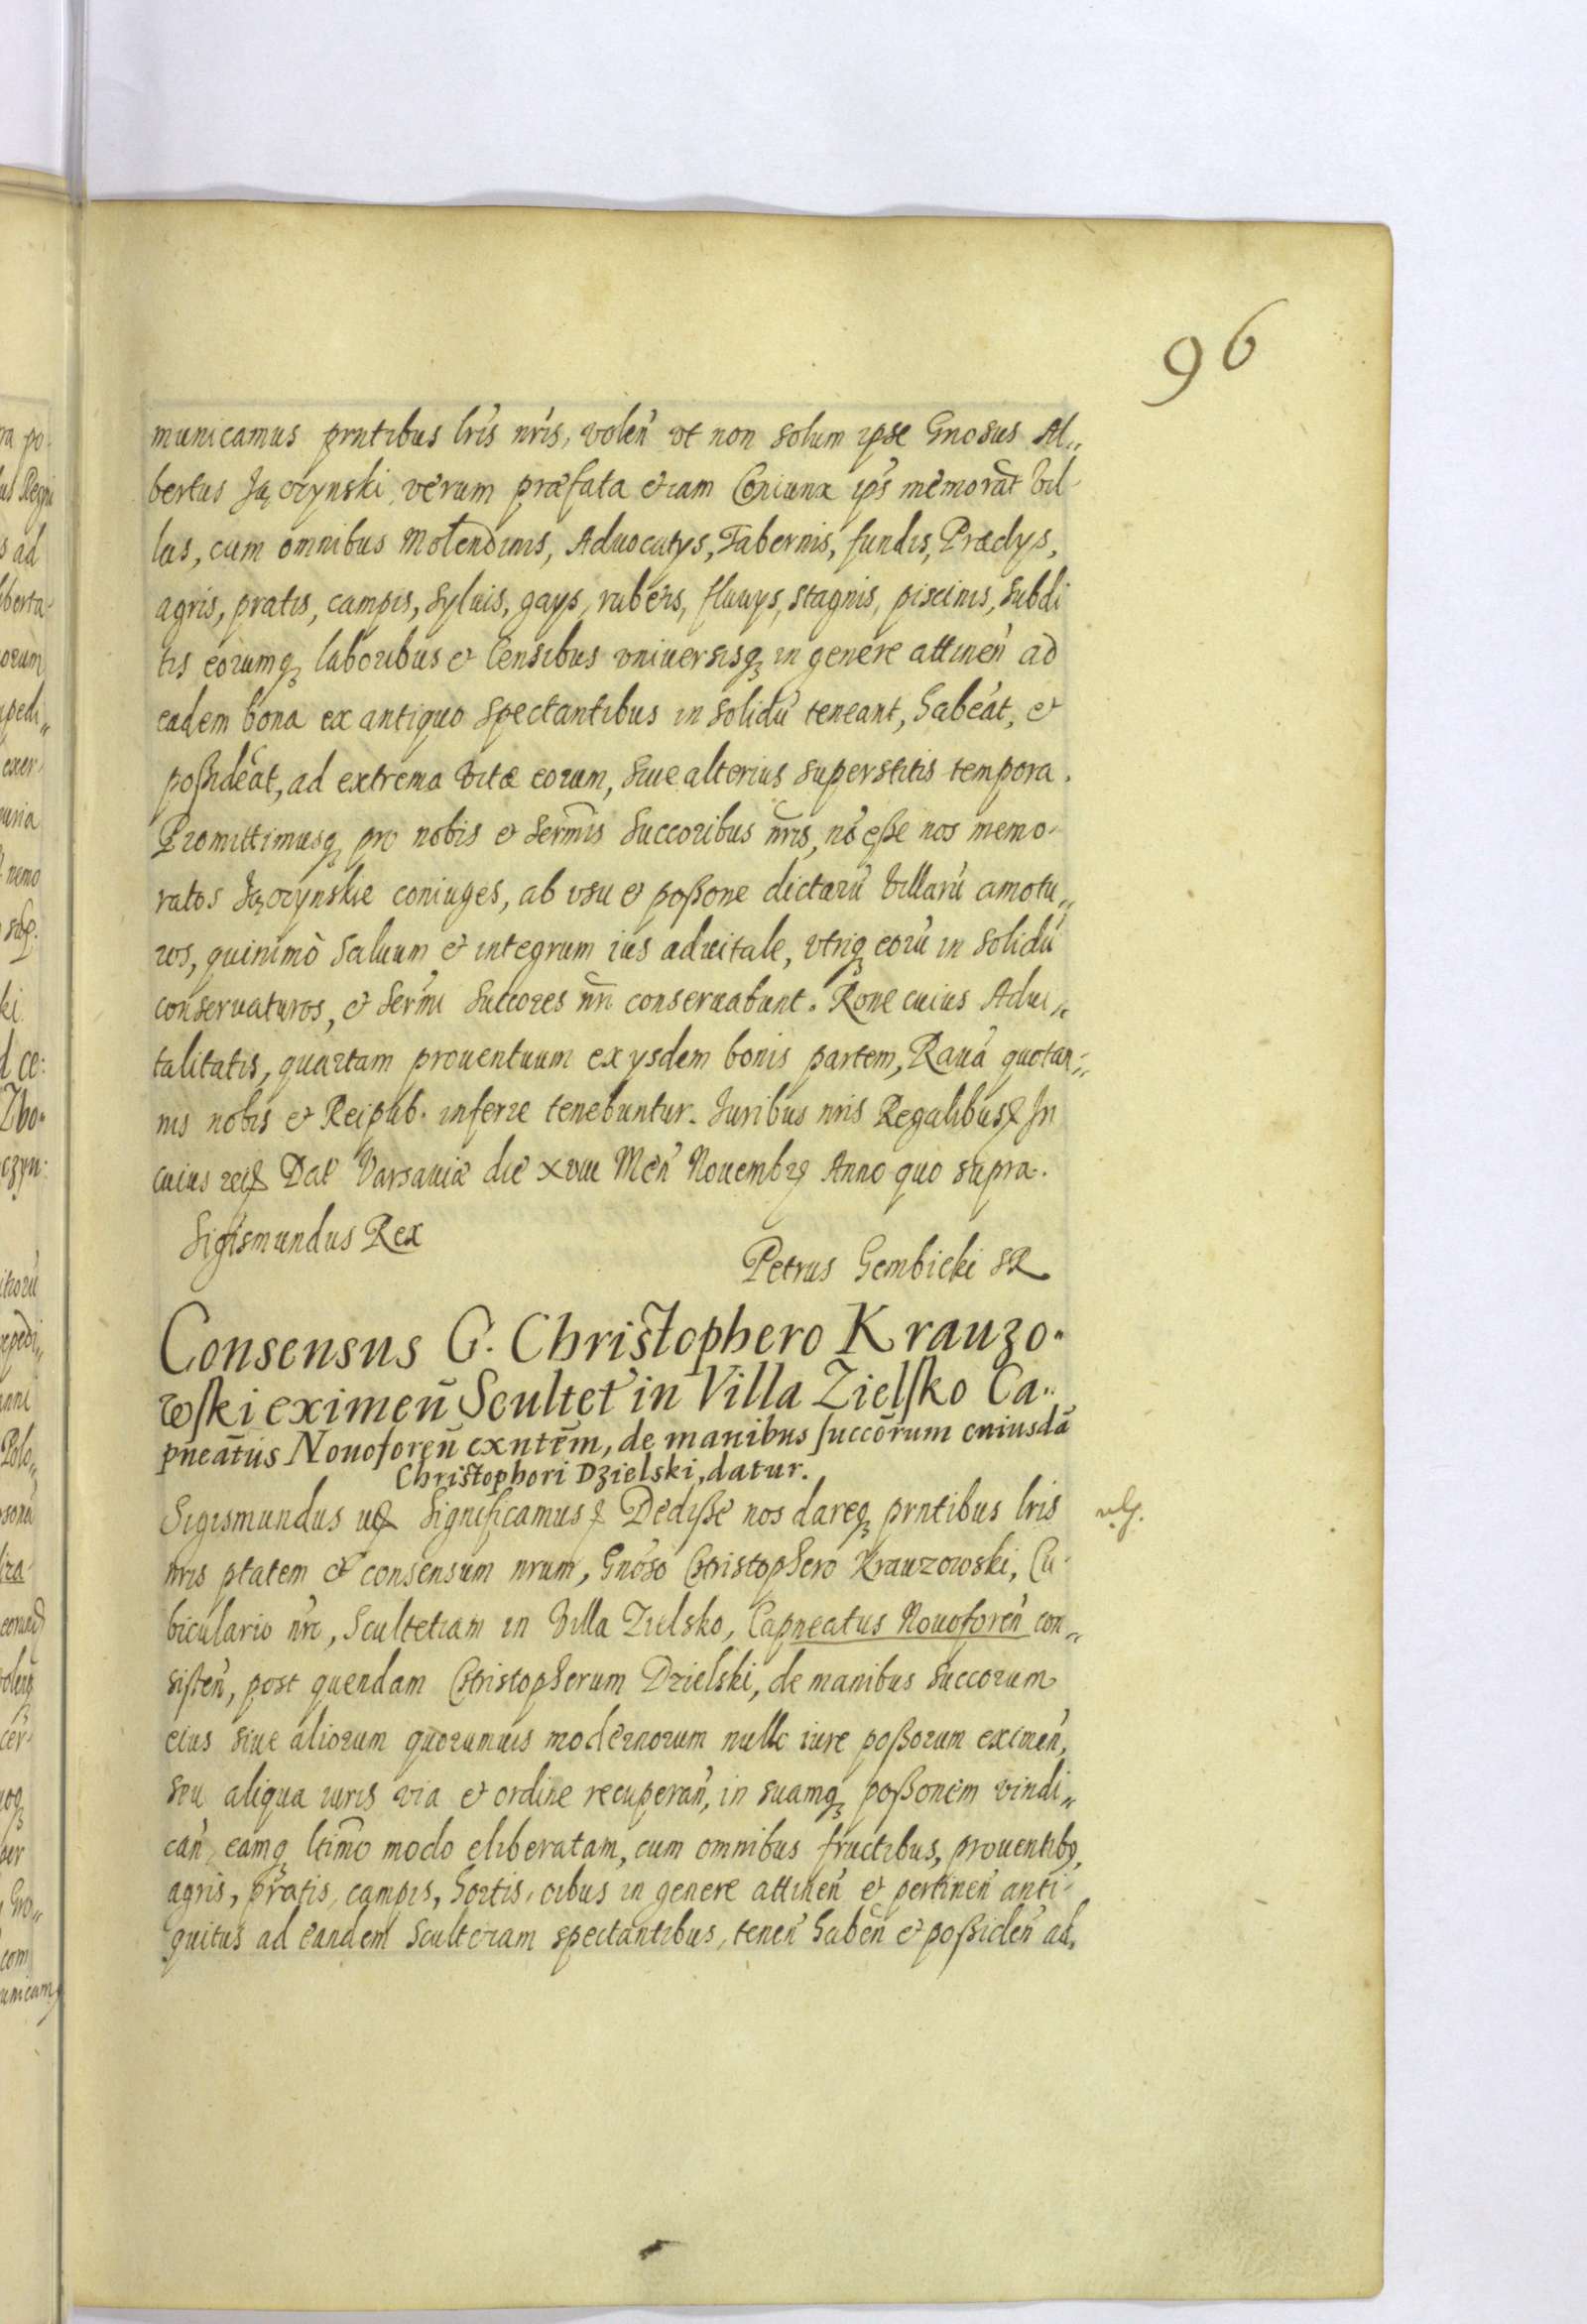 96
municamus prntibus lris nris, volen̄ vt non solum ipse Gnosus Al„
bertus Jączynski, verum præfata etiam Coniunx ips memorat Vil-
las, cum omnibus Molendinis, Aduocatys, Tabernis, fundis, Prædys,
agris, pratis, campis, syluis, gays, rubetis, fluuys, stagnis, piscinis, subdi
tis eorumq₃ laboribus et Censibus vniuersisq₃ in genere attinen̄ ad
eadem bona ex antiquo spectantibus in solidū teneant, habeāt, et
poßideāt, ad extrema vitæ eorum, siue alterius superstitis tempora.
Promittimusq₃ pro nobis et Sermis Succoribus nris, nō eße nos memo-
ratos Jączynskie coniuges, ab vsu et poßone dictarū Villarū amotu„
ros, quinimò saluum et integrum ius aduitale, vtriq₃ eorū in solidū
conseruaturos, et Sermi Succores nri conseruabunt. Rone cuius Adui„
talitatis, quartam prouentuum ex ysdem bonis partem, Rauā quotan„
nis nobis et Reipub. inferre tenebuntur. Juribus nris Regalibus & Jn
cuius rei & Dat Varsauiæ die xviii Men̄ Nouembr₃ Anno quo supra.
Sigismundus Rex
Petrus Gembicki SR
Consensus G. Christophero Krauzo„
wski eximen̄ Scultet in Villa Zielsko Ca„
pneatus Nouoforen̄ exntem, de manibus succorum cuiusdā
Christophori Dzielski, datur.
Sigismundus &
Significamus & Dediße nos dareq₃ prntibus lris
nris ptatem et consensum nrum, Gnoso Christophero Krauzowski, Cu-
biculario nro, Scultetiam in Villa Zielsko, Capneatus Nouoforen̄ con„
sisten̄, post quendam Christopherum Dzielski, de manibus Succorum
eius siue aliorum quorumuis modernorum nullo iure poßorum eximen̄,
seu aliqua iuris via et ordine recuperan̄, in suamq₃ poßonem vindi„
can̄, eamq₃ ltimo modo eliberatam, cum omnibus fructibus, prouentib₉,
agris, pratis, campis, hortis, oibus in genere attinen̄ et pertinen̄ anti-
quitus ad eandem Scultetiam spectantibus, tenen̄ haben̄ et poßiden̄ ad,